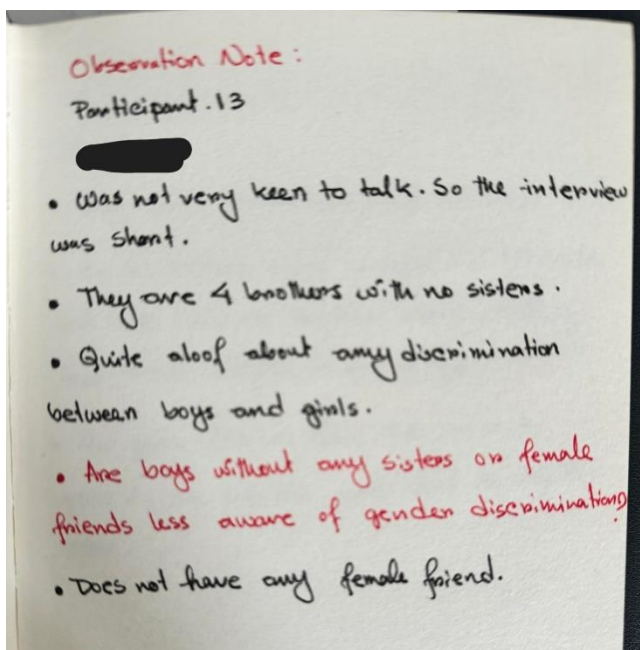 Observation Note :
Participant. 13
• Was not very keen to talk. So the interview
was short.
• They are 4 brothers with no sisters.
• Quite aloof about any discrimination
between boys and girls.
• Are boys without any sisters or female
friends less aware of gender discrimination?
• Does not have any female friend.